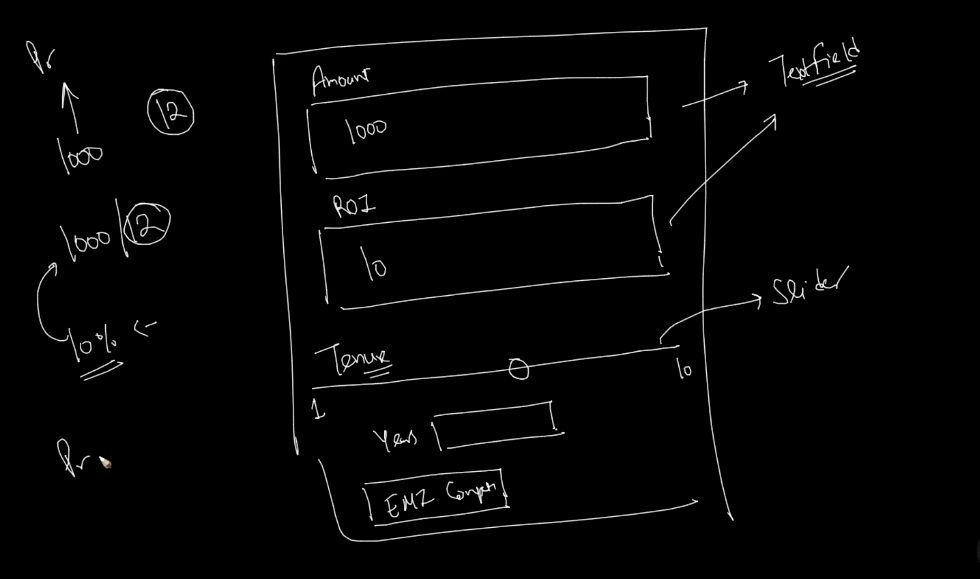 Pr
1000
12
1000/12
10%
Pr
Amount
1000
ROI
10
Tenure
1
10
Years
EMI
Textfield
Slider